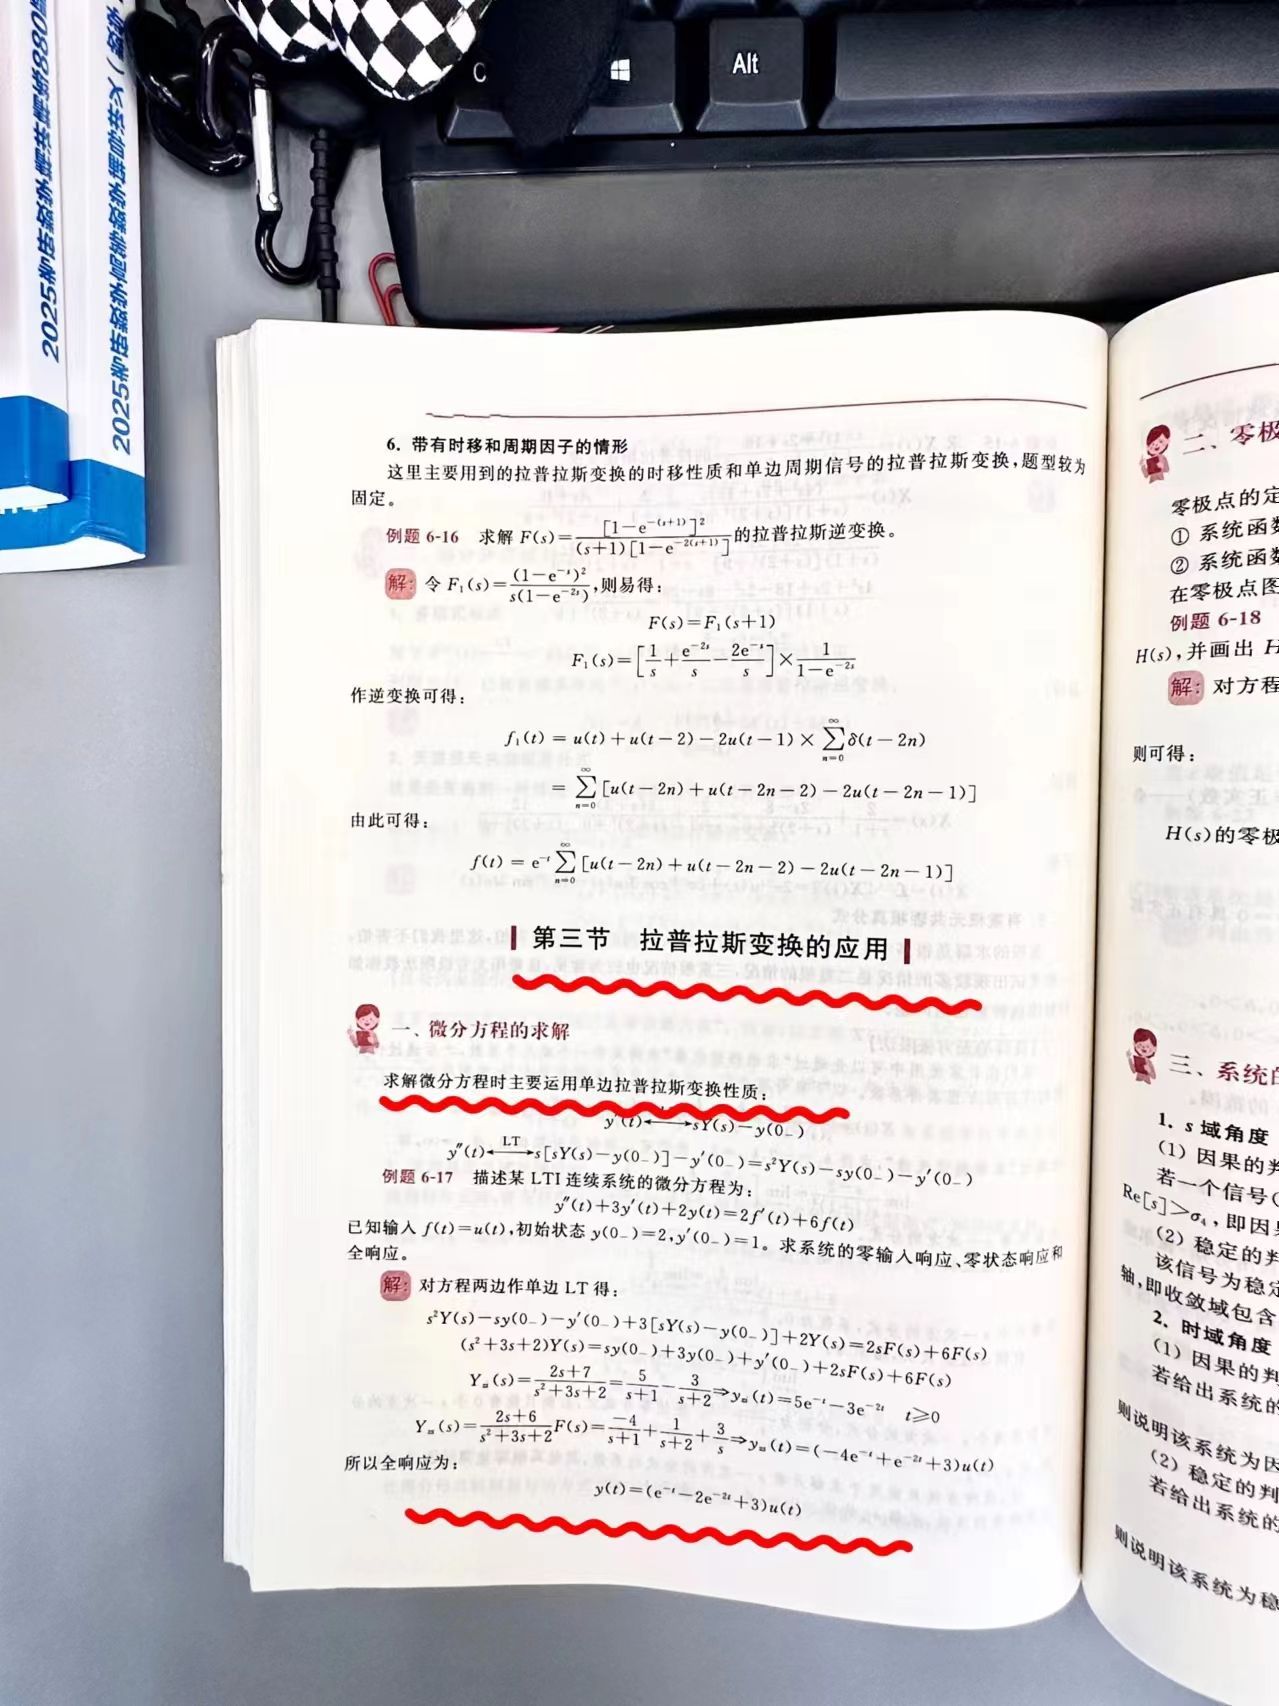 Alt
2025考研数学
2025考研数学
6. 带有时移和周期因子的情形
这里主要用到的拉普拉斯变换的时移性质和单边周期信号的拉普拉斯变换,题型较为
固定。
例题 6-16 求解 F(s)=[1-e^{-(s+1)}]²/((s+1)[1-e^{-2(s+1)}])的拉普拉斯逆变换。
解: 令 F₁(s)=(1-e^{-s})²/(s(1-e^{-2s})),则易得:
F(s)=F₁(s+1)
F₁(s)=[1/s+e^{-2s}/s-2e^{-s}/s]×1/(1-e^{-2s})
作逆变换可得:
f₁(t) = u(t)+u(t-2)-2u(t-1)×∑_{n=0}^{∞}δ(t-2n)
= ∑_{n=0}^{∞}[u(t-2n)+u(t-2n-2)-2u(t-2n-1)]
由此可得:
f(t) = e^{-t}∑_{n=0}^{∞}[u(t-2n)+u(t-2n-2)-2u(t-2n-1)]
第三节 拉普拉斯变换的应用
一、微分方程的求解
求解微分方程时主要运用单边拉普拉斯变换性质:
y′(t)⟷sY(s)-y(0₋)
y″(t)⟷LT s[sY(s)-y(0₋)]-y′(0₋)=s²Y(s)-sy(0₋)-y′(0₋)
例题 6-17 描述某 LTI 连续系统的微分方程为:
y″(t)+3y′(t)+2y(t)=2f′(t)+6f(t)
已知输入 f(t)=u(t),初始状态 y(0₋)=2,y′(0₋)=1。求系统的零输入响应、零状态响应和
全响应。
解: 对方程两边作单边 LT 得:
s²Y(s)-sy(0₋)-y′(0₋)+3[sY(s)-y(0₋)]+2Y(s)=2sF(s)+6F(s)
(s²+3s+2)Y(s)=sy(0₋)+3y(0₋)+y′(0₋)+2sF(s)+6F(s)
Y(s)=(2s+7)/(s²+3s+2)=5/(s+1)-3/(s+2)⇒y(t)=5e^{-t}-3e^{-2t} t≥0
Y(s)=(2s+6)/(s²+3s+2)F(s)=-4/(s+1)+1/(s+2)+3/s⇒y(t)=(-4e^{-t}+e^{-2t}+3)u(t)
所以全响应为:
y(t)=(e^{-t}-2e^{-2t}+3)u(t)
二、零极
零极点的定
① 系统函数
② 系统函数
在零极点图
例题 6-18
H(s),并画出 H
解: 对方程
则可得:
H(s)的零极
三、系统的
1. s 域角度
(1) 因果的判
若一个信号(
Re[s]>σ,即因果
(2) 稳定的判
该信号为稳定
轴,即收敛域包含
2. 时域角度
(1) 因果的判
若给出系统的
则说明该系统为因
(2) 稳定的判
若给出系统的
则说明该系统为稳